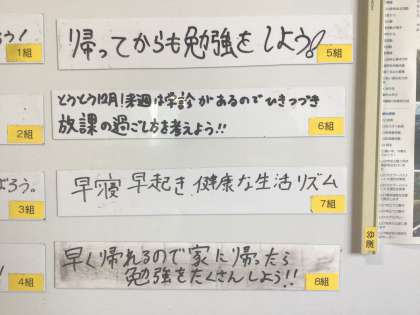 う!
1組
帰ってからも勉強をしよう!
5組
2組
とうとう12月!来週は学診があるのでひきつづき
放課の過ごし方を考えよう!!
6組
ろう。
3組
早寝 早起き 健康な生活リズム
7組
4組
早く帰れるので家に帰ったら
勉強をたくさんしよう!!
8組